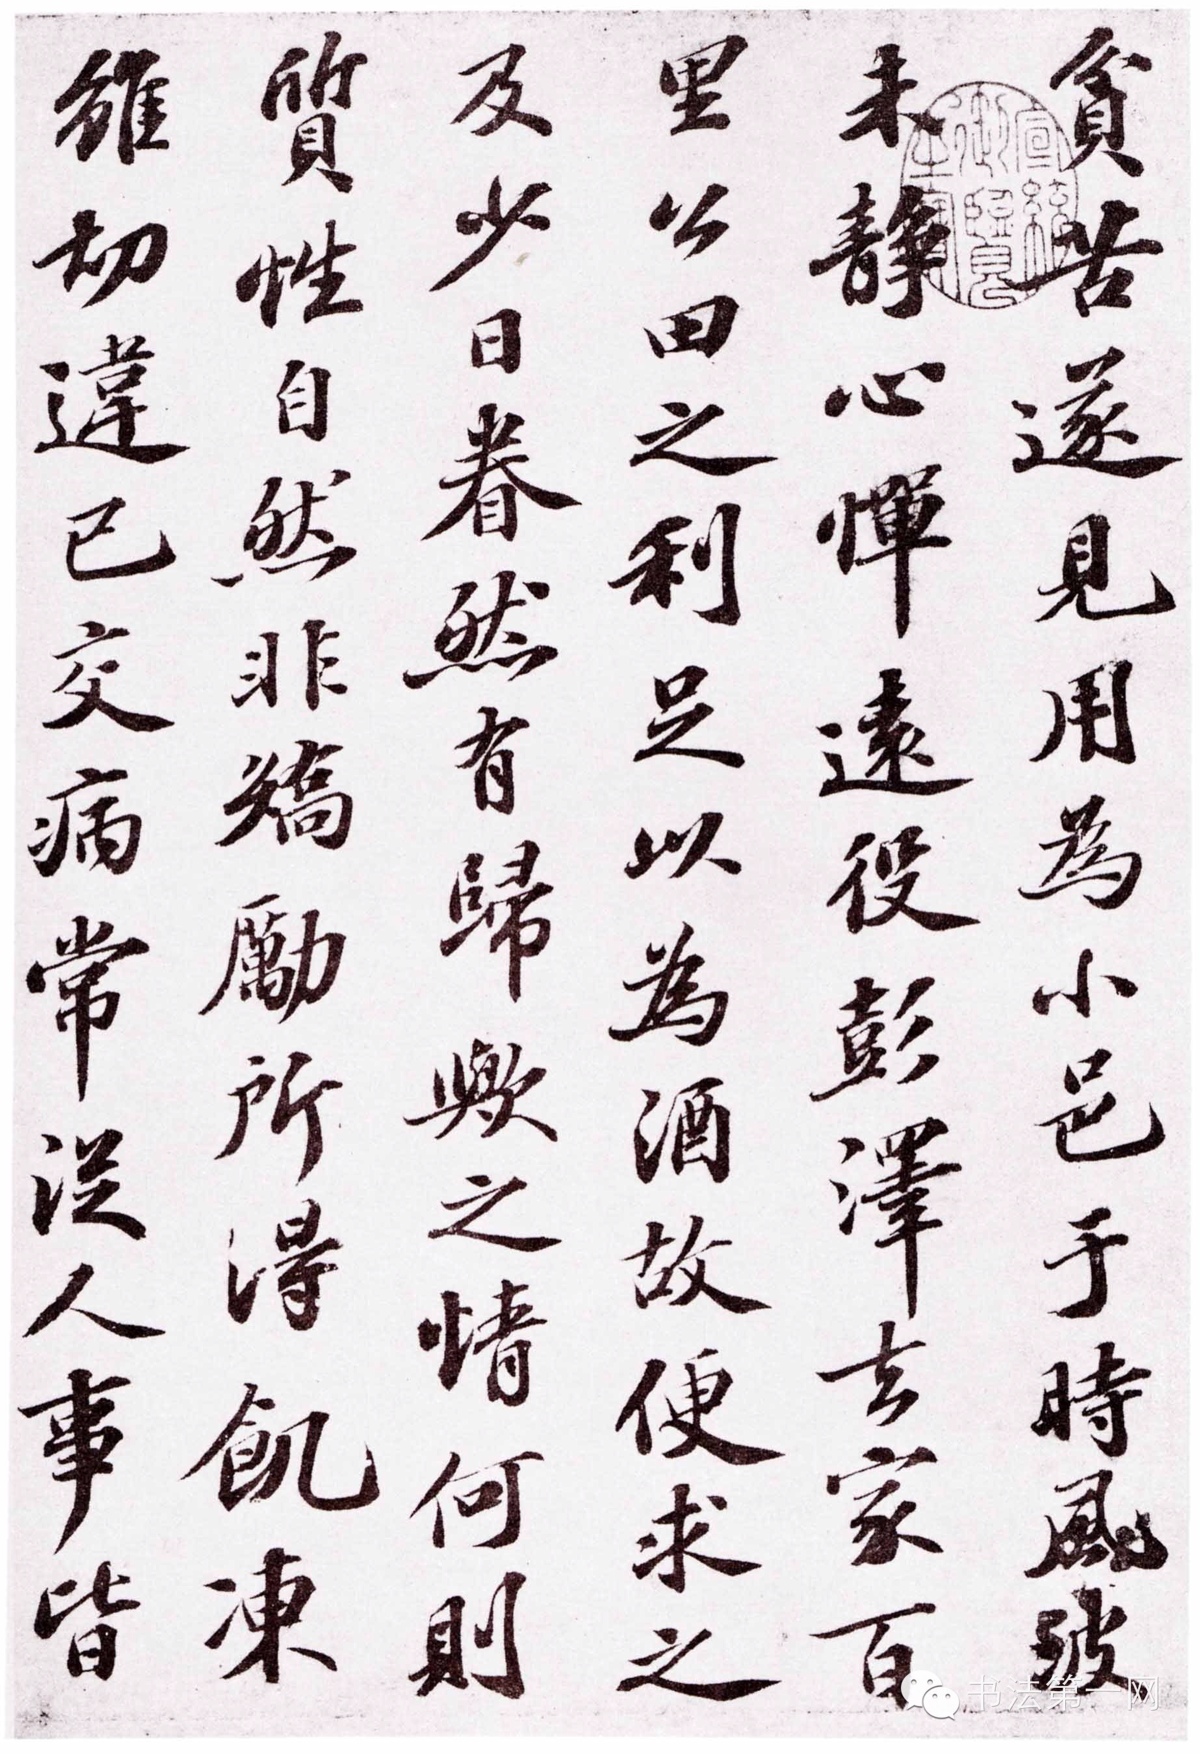 貧苦遂見用為小邑于時風波
未靜心憚遠役彭澤去家百
里公田之利足以為酒故便求之
及少日眷然有歸歟之情何則
質性自然非矯勵所得飢凍
雖切違已交病常從人事皆
宣統御覽之寶
书法第一网